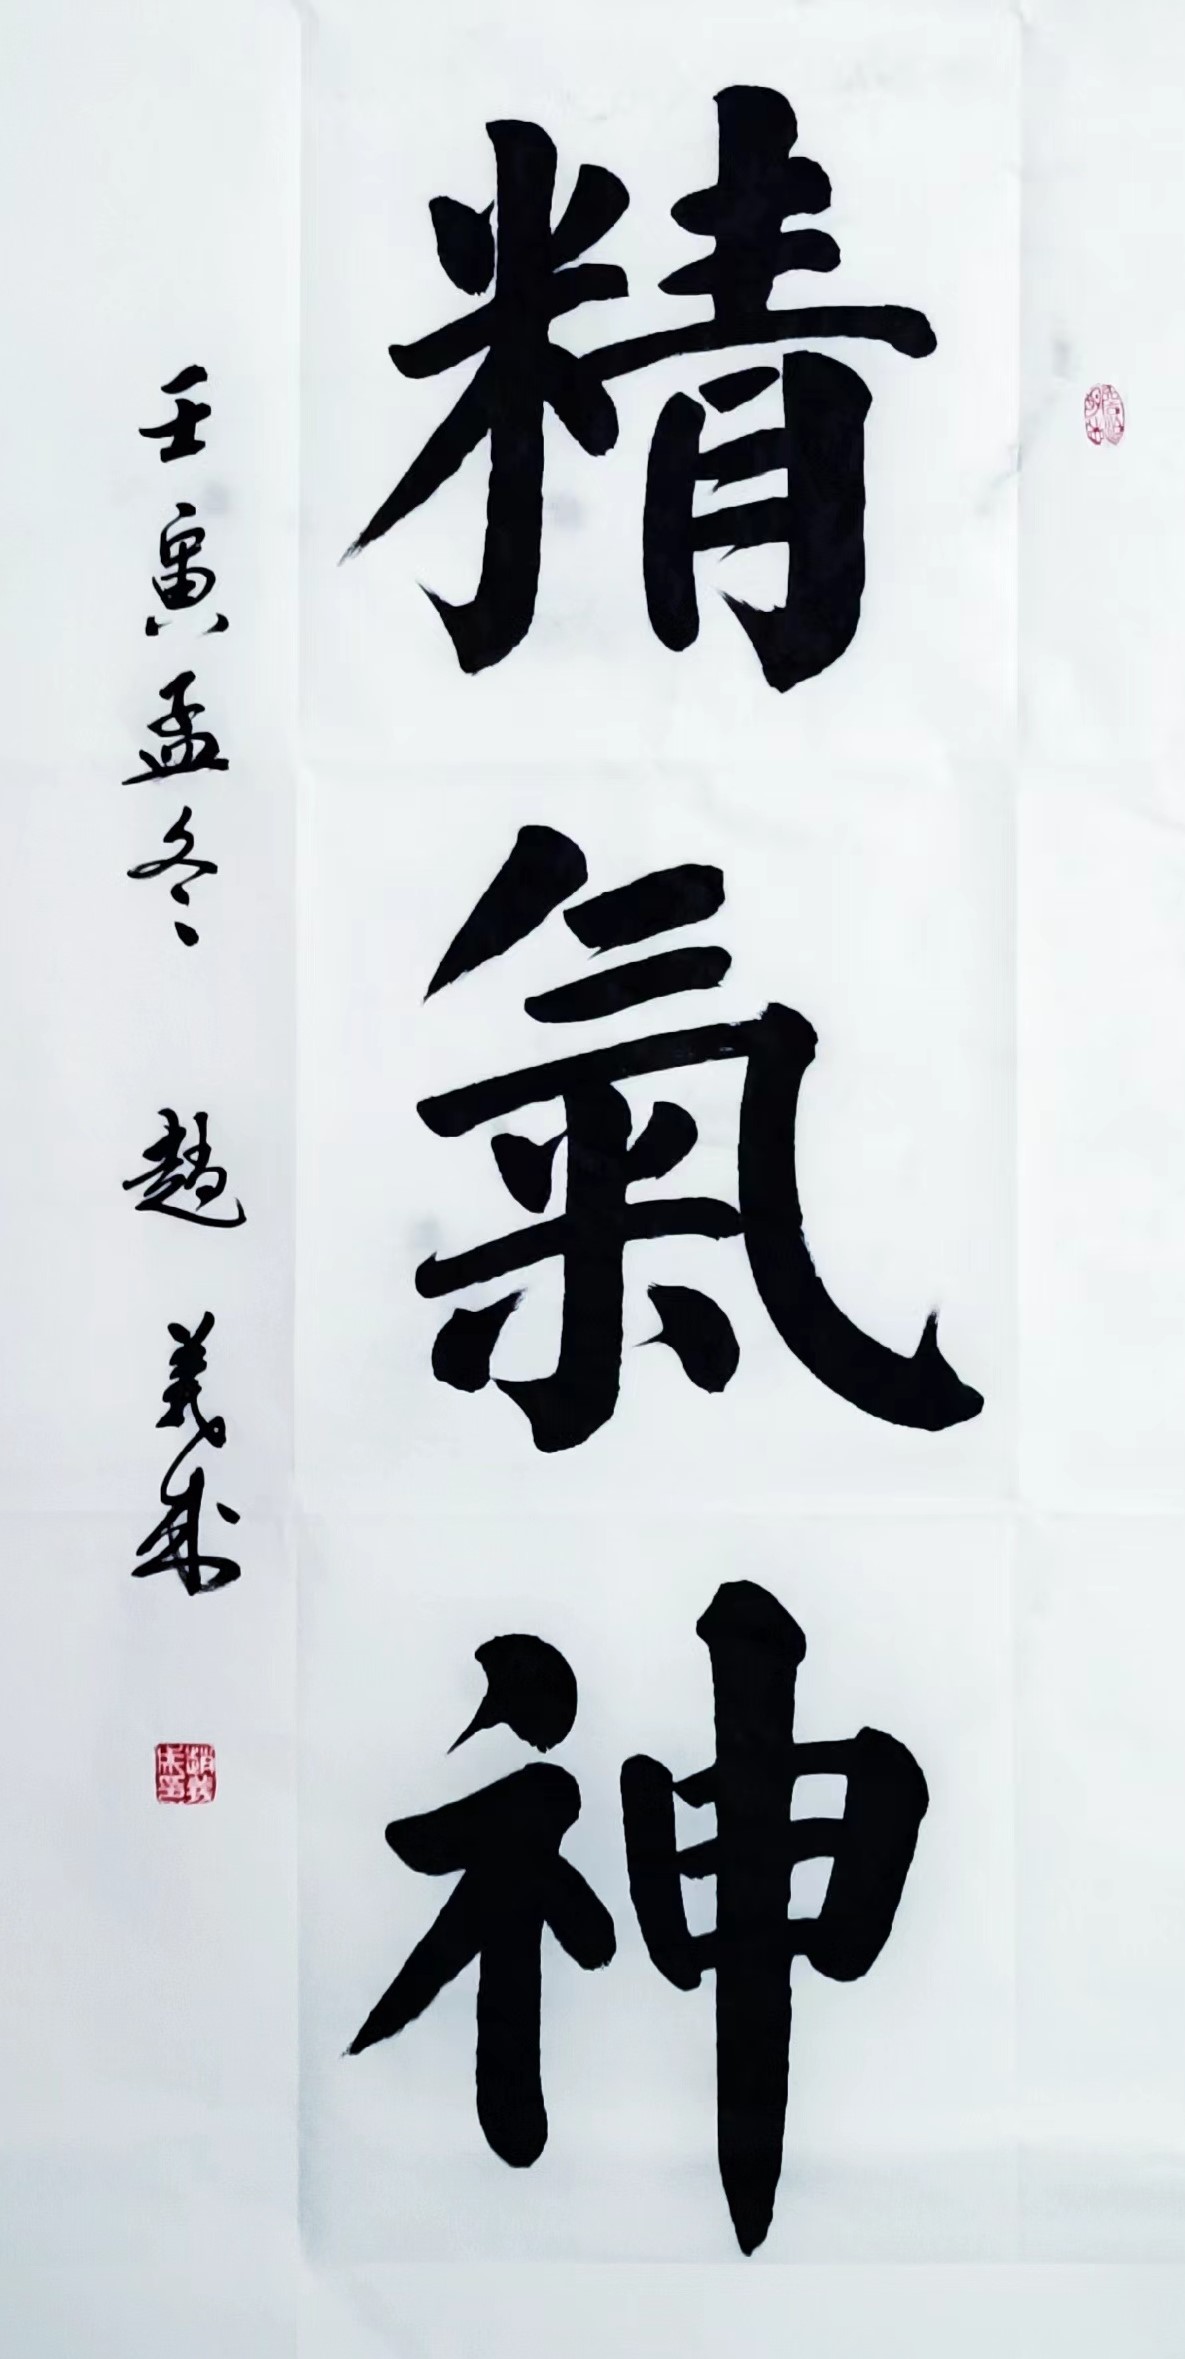 精氣神
壬寅孟冬 趙義成